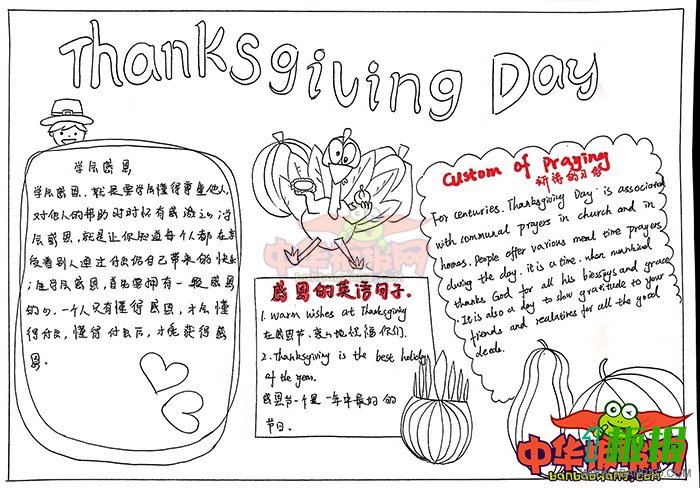 Thanksgiving Day
学会感恩
学会感恩,就是要学会懂得尊重他人,
对他人的帮助时时怀有感激之心,
会感恩,就是让你知道每个人都在享
受着别人通过付出给自己带来的快乐
学会感恩,首先要拥有一颗感恩
的心,一个人只有懂得感恩,才会懂
得付出,懂得付出后,才能获得感
恩.
感恩的英语句子.
1. warm wishes at Thanksgiving
在感恩节,衷心地祝福你们.
2. Thanksgiving is the best holiday
of the year.
感恩节一个是一年中最好的
节日.
Custom of Praying
祈祷的习俗
For centuries. Thanksgiving Day is associated
with communal prayers in church and in
homes. People offer various meal time prayers
during the day. it is a time. when mankind
thanks God for all his blessings and grace
.It is also a day to show gratitude to your
friends and realatires for all the good
deeds.
中华板报网
中华板报网
banbaowang.com